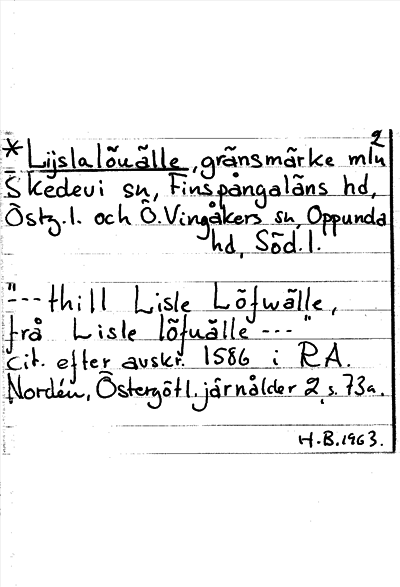 2
*Lijslalöuälle, gränsmärke mln
Skedevi sn, Finspångaläns hd,
Östg.l. och Ö.Vingåkers sn, Oppunda
hd, Söd.l.
"--- thill Lisle Löfwälle,
frå Lisle löfuälle --- "
cit. efter avskr. 1586 i RA.
Nordén, Östergötl. järnålder 2, s. 73a.
H.B.1963.